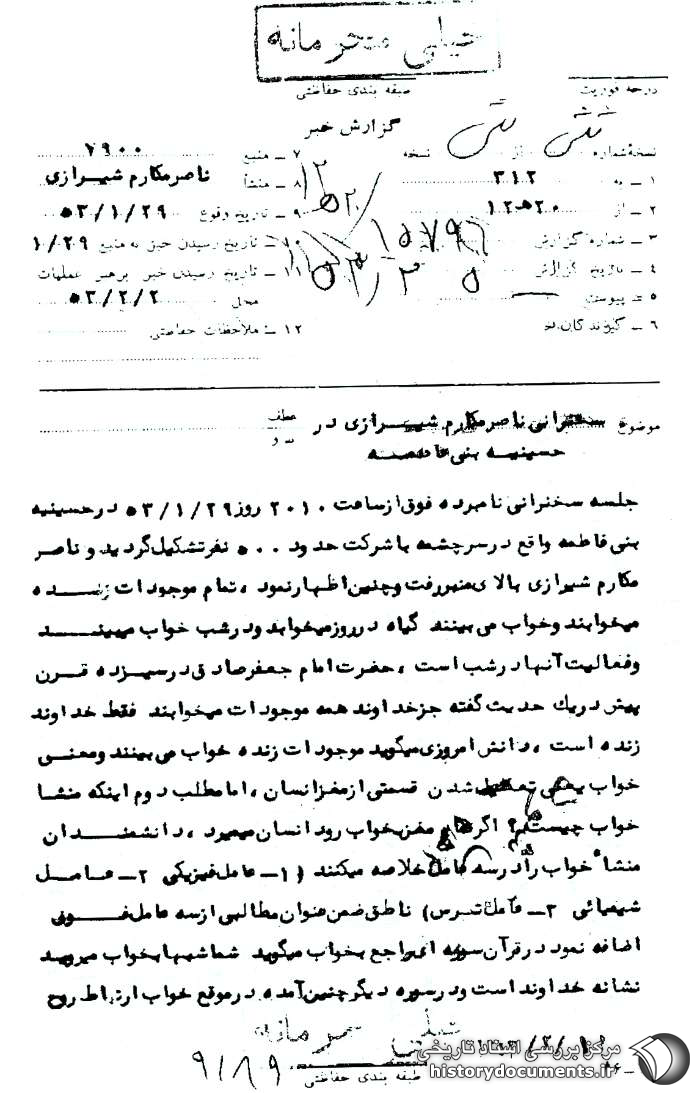 خیلی محرمانه
درجه فوریت
طبقه بندی حفاظتی
گزارش خبر
نسخهٔ شماره از نسخه
۱ – به ۳۱۲
۲ – از ۲۰ ه‍ ۱۲
۳ – شماره گزارش ۱۵۷۹۶
۴ – تاریخ گزارش
۵ – پیوست
۶ – گیرندگان خبر
۷ – منبع ۷۹۰۰
۸ – منشأ ناصر مکارم شیرازی
۹ – تاریخ وقوع ۵۳/۱/۲۹
۱۰ – تاریخ رسیدن خبر به منبع ۱/۲۹
۱۱ – تاریخ رسیدن خبر برهبر عملیات
محل ۵۳/۲/۲
۱۲ – ملاحظات حفاظتی
موضوع سخنرانی ناصر مکارم شیرازی در
عطف
حسینیه بنی فاطمه
جلسه سخنرانی نامبرده فوق از ساعت ۲۰۱۰ روز ۵۳/۱/۲۹ در حسینیه
بنی فاطمه واقع در سرچشمه با شرکت حدود ۵۰۰ نفر تشکیل گردید و ناصر
مکارم شیرازی بالای منبر رفت و چنین اظهار نمود ، تمام موجودات زنده
میخوابند و خواب می بینند گیاه در روز میخوابد و در شب خواب میبیند
و فعالیت آنها در شب است ، حضرت امام جعفر صادق در سیزده قرن
پیش در یک حدیث گفته جز خداوند همه موجودات میخوابند فقط خداوند
زنده است ، دانش امروزی میگوید موجودات زنده خواب می بینند و معنی
خواب یعنی تعطیل شدن قسمتی از مغز انسان ، اما مطلب دوم اینکه منشا
خواب چیست ؟ اگر مغز بخواب رود انسان میمیرد ، دانشمندان
منشأ خواب را در سه عامل خلاصه میکنند ( ۱ – عامل فیزیکی ۲ – عامل
شیمیائی ۳ – عامل ترس ) ناطق ضمن عنوان مطالبی از سه عامل فوق
اضافه نمود در قرآن سوره ای راجع بخواب میگوید شما شبها بخواب میروید
نشانه خداوند است و در سوره دیگر چنین آمده در موقع خواب ارتباط روح
خیلی محرمانه
طبقه بندی حفاظتی
۹۱۸۹
مرکز بررسی اسناد تاریخی
historydocuments.ir